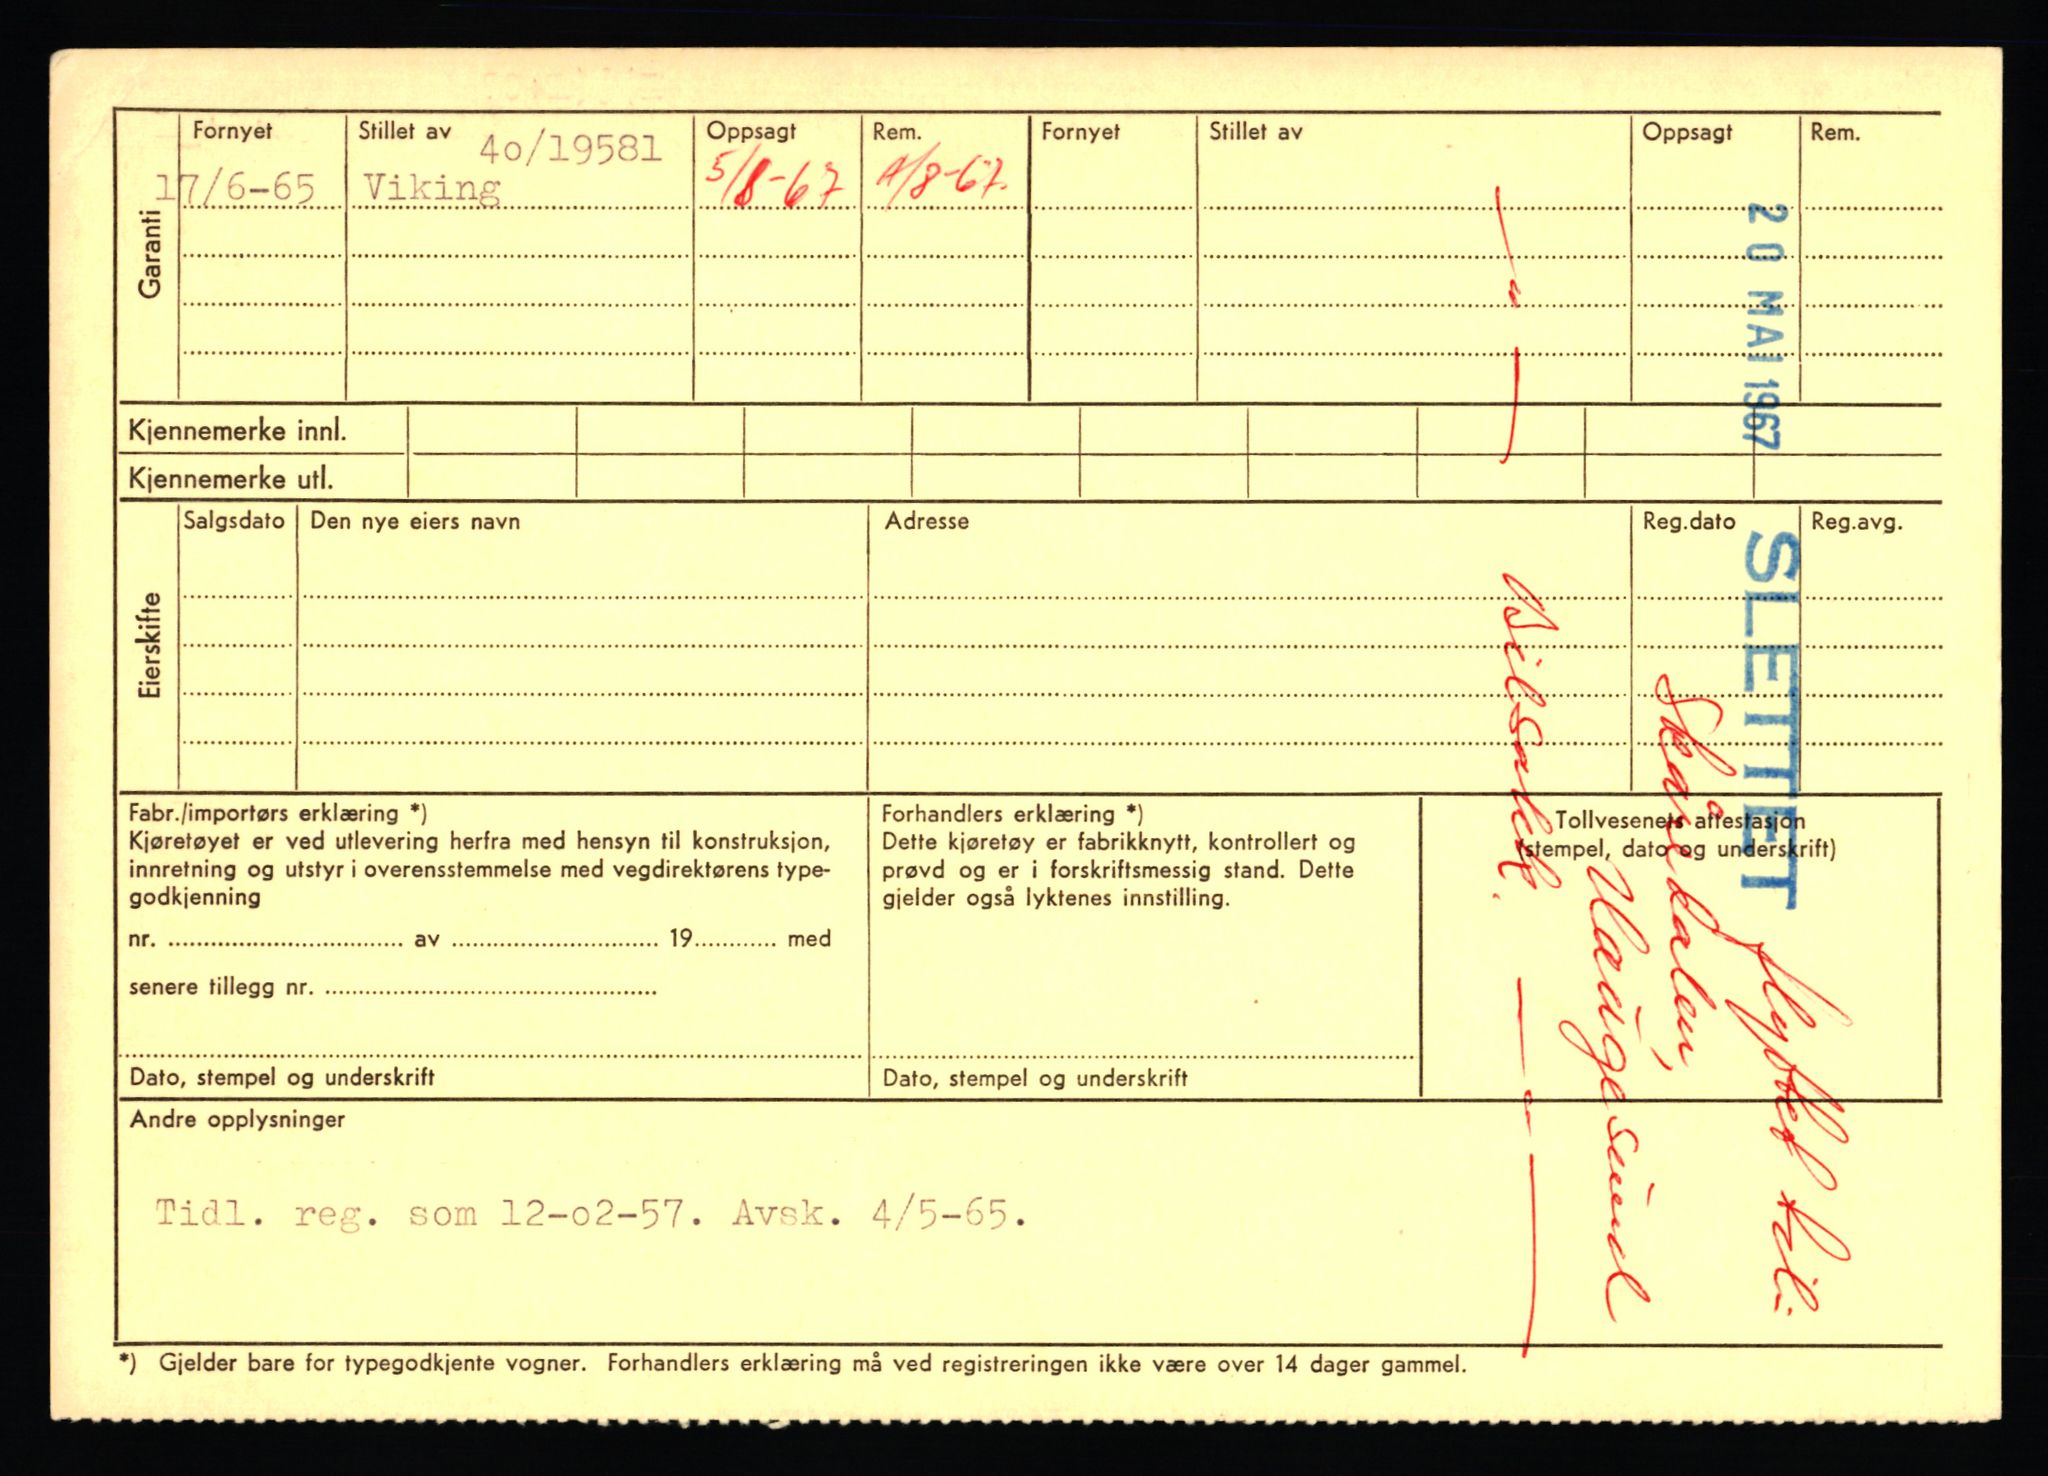 Garanti
Fornyet Stillet av Oppsagt Rem. Fornyet Stillet av Oppsagt Rem.
40/19581
17/6-65 Viking 5/8-67 /8-67.
Kjennemerke innl.
Kjennemerke utl.
Eierskifte
Salgsdato Den nye eiers navn Adresse Reg.dato Reg.avg.
Fabr./importørs erklæring *)
Kjøretøyet er ved utlevering herfra med hensyn til konstruksjon,
innretning og utstyr i overensstemmelse med vegdirektørens type-
godkjenning
nr. .......... av .......... 19.......... med
senere tillegg nr. ..........
Dato, stempel og underskrift
Forhandlers erklæring *)
Dette kjøretøy er fabrikknytt, kontrollert og
prøvd og er i forskriftsmessig stand. Dette
gjelder også lyktenes innstilling.
Dato, stempel og underskrift
Tollvesenets attestasjon
(stempel, dato og underskrift)
Andre opplysninger
Tidl. reg. som 12-02-57. Avsk. 4/5-65.
*) Gjelder bare for typegodkjente vogner. Forhandlers erklæring må ved registreringen ikke være over 14 dager gammel.
20 MAI 1967 SLETTET
flyttet til:
Skåredalen,
Haugesund